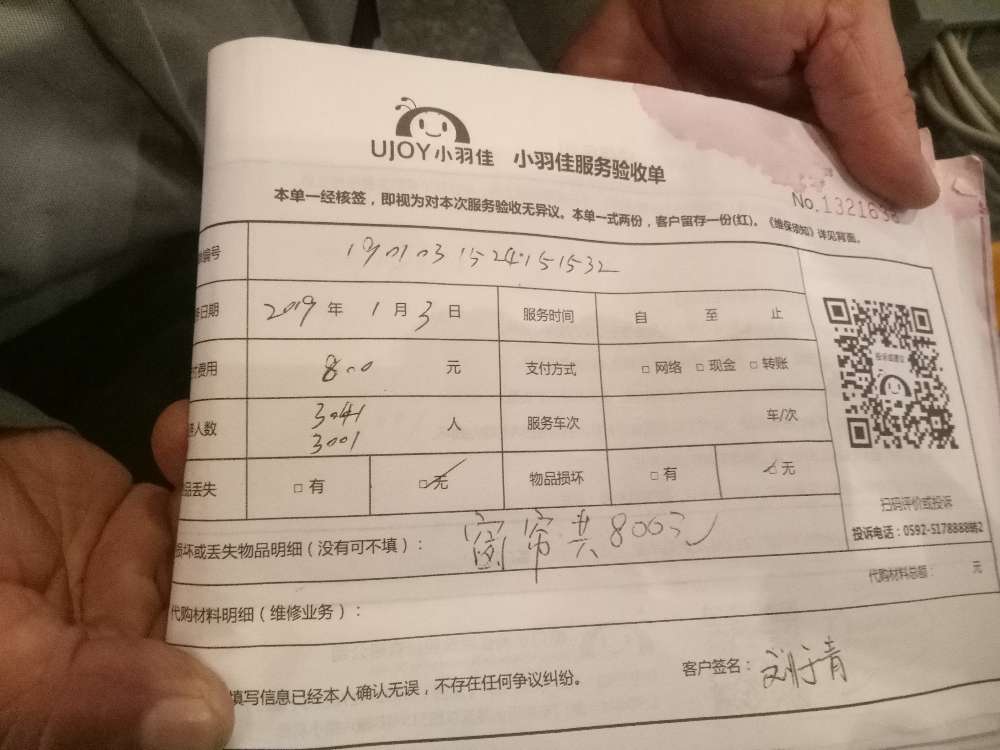 UJOY小羽佳 小羽佳服务验收单
No.132163
本单一经核签，即视为对本次服务验收无异议。本单一式两份，客户留存一份(红)。《维保须知》详见背面。
编号 190103152415 1532
日期 2019 年 1 月 3 日 服务时间 自 至 止
费用 800 元 支付方式 □ 网络 □ 现金 □ 转账
人数 3041 3001 人 服务车次 车/次
品丢失 □ 有 □ 无 物品损坏 □ 有 □ 无
投诉或建议
扫码评价或投诉
投诉电话：0592-5178888转2
损坏或丢失物品明细（没有可不填）： 窗帘共800元
代购材料总额： 元
代购材料明细（维修业务）：
填写信息已经本人确认无误，不存在任何争议纠纷。 客户签名：